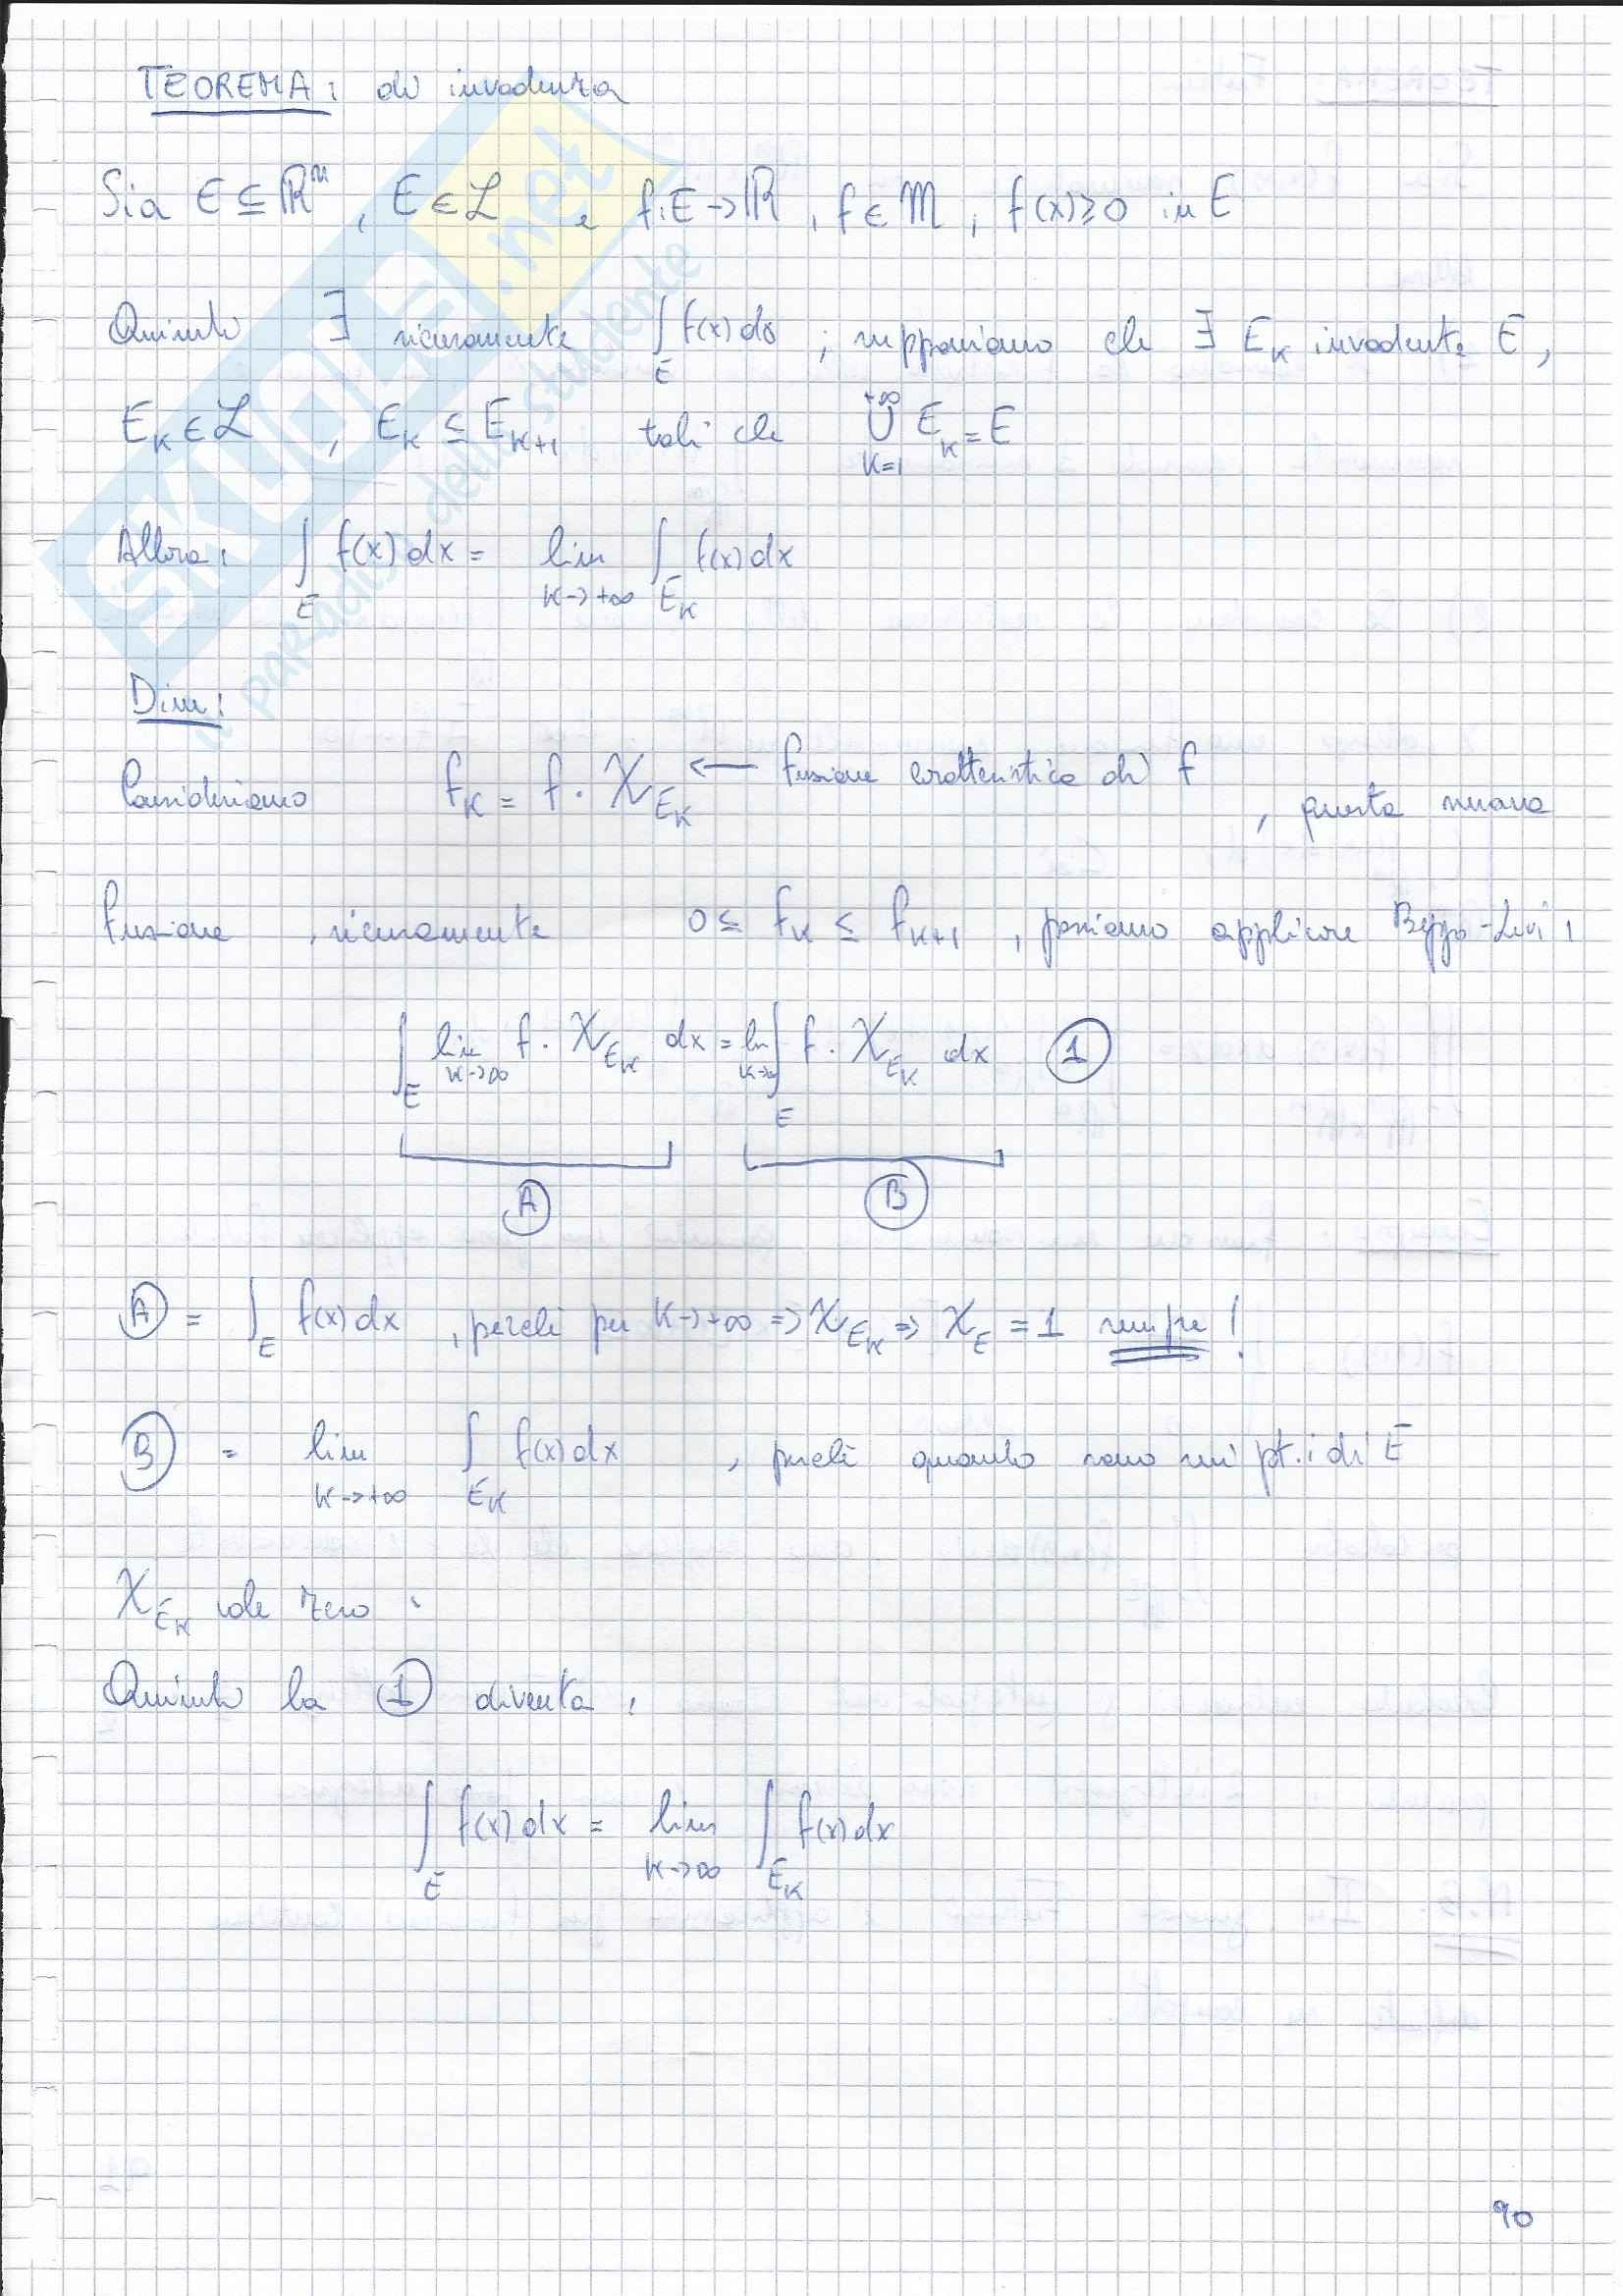 TEOREMA: di invadenza
Sia E ⊆ ℝⁿ, E ∈ ℒ e f: E → ℝ, f ∈ M, f(x) ≥ 0 in E
Quindi ∃ sicuramente ∫_E f(x) dx ; supponiamo che ∃ E_k invadente E,
E_k ∈ ℒ , E_k ⊆ E_{k+1} tali che ⋃_{k=1}^{+∞} E_k = E
Allora: ∫_E f(x) dx = lim_{k→+∞} ∫_{E_k} f(x) dx
Dim:
Consideriamo f_k = f · χ_{E_k} ← funzione caratteristica di f , questa nuova
funzione , sicuramente 0 ≤ f_k ≤ f_{k+1} , possiamo applicare Beppo-Levi:
∫_E lim_{k→∞} f · χ_{E_k} dx = lim_{k→∞} ∫_E f · χ_{E_k} dx ①
Ⓐ Ⓑ
Ⓐ = ∫_E f(x) dx , perché per k→+∞ ⇒ χ_{E_k} ⇒ χ_E = 1 sempre!
Ⓑ = lim_{k→+∞} ∫_{E_k} f(x) dx , perché quando sono nei pt.i di E
χ_{E_k} vale zero.
Quindi la ① diventa:
∫_E f(x) dx = lim_{k→∞} ∫_{E_k} f(x) dx
90
SKUOLA.net
il paradiso dello studente